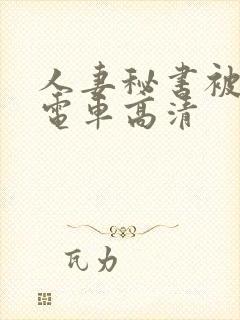 人妻秘书被
電車高清
瓦力